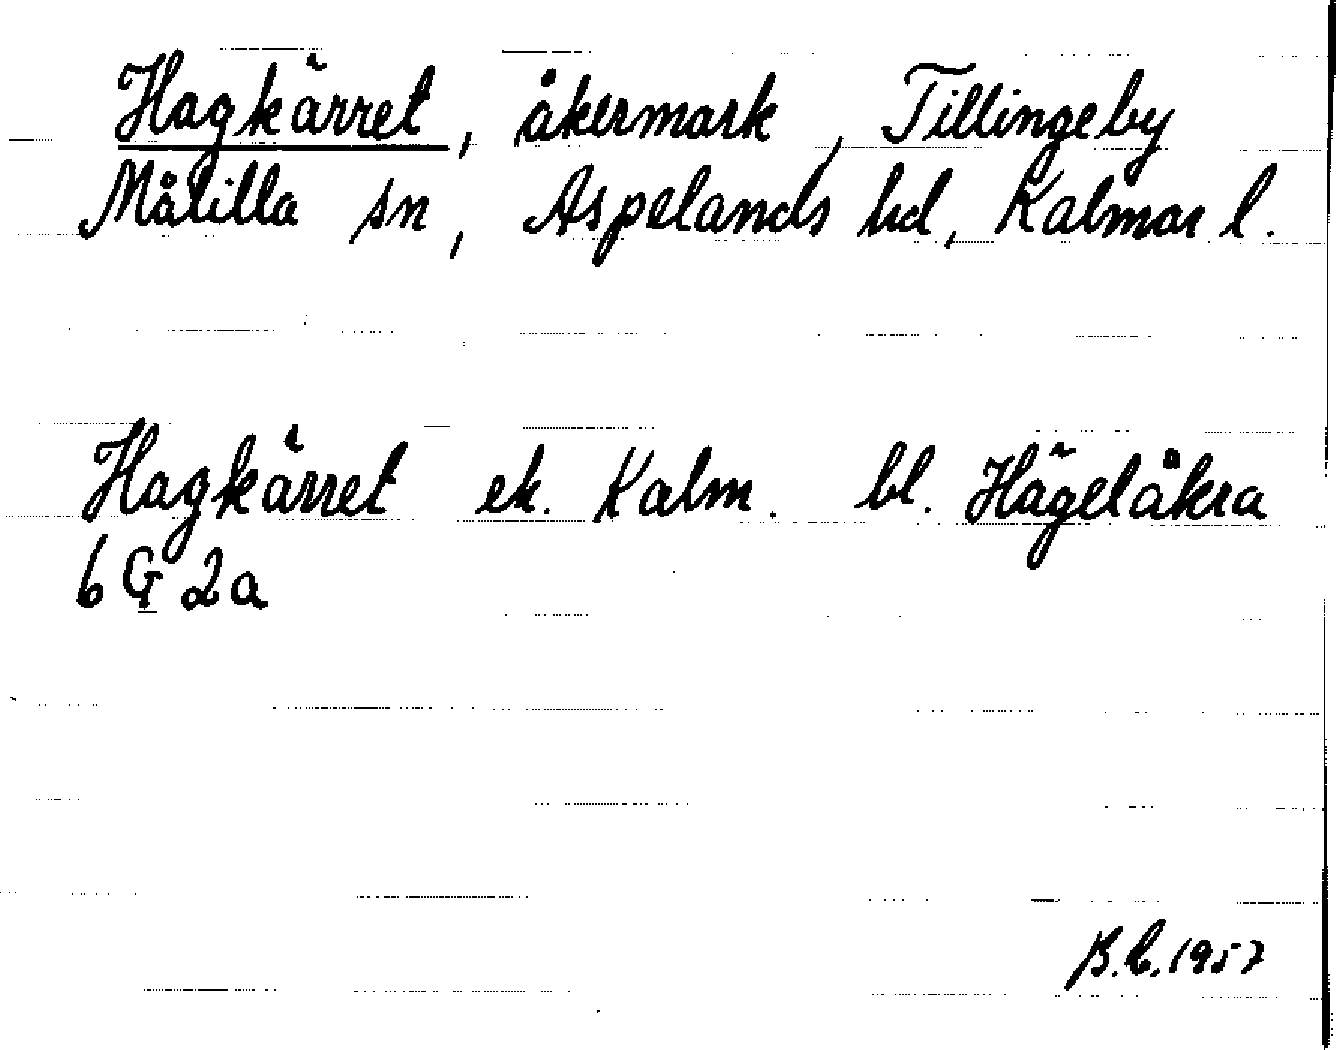 Hagkärret, åkermark, Tillingeby
Målilla sn, Aspelands hd, Kalmar l.
Hagkärret ek. Kalm. bl. Hägelåkra
6 G 2a
B.C. 1957